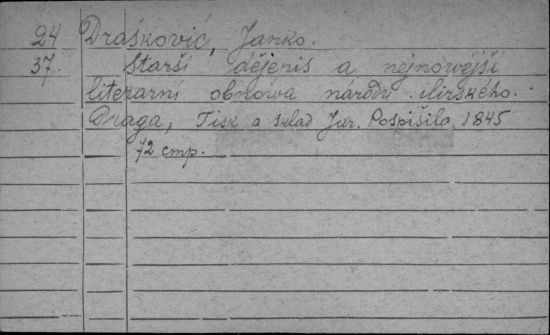 24 Drašković, Janko.
37. Starší dějepis a nejnowější
literarní obnowa národu ilirského.
Praga, Tisk a sklad Jar. Pospíšila 1845
72 cmp.